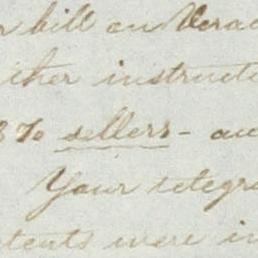 bill on Verac
ther instructi
% sellers - an
Your telegra
tents were in